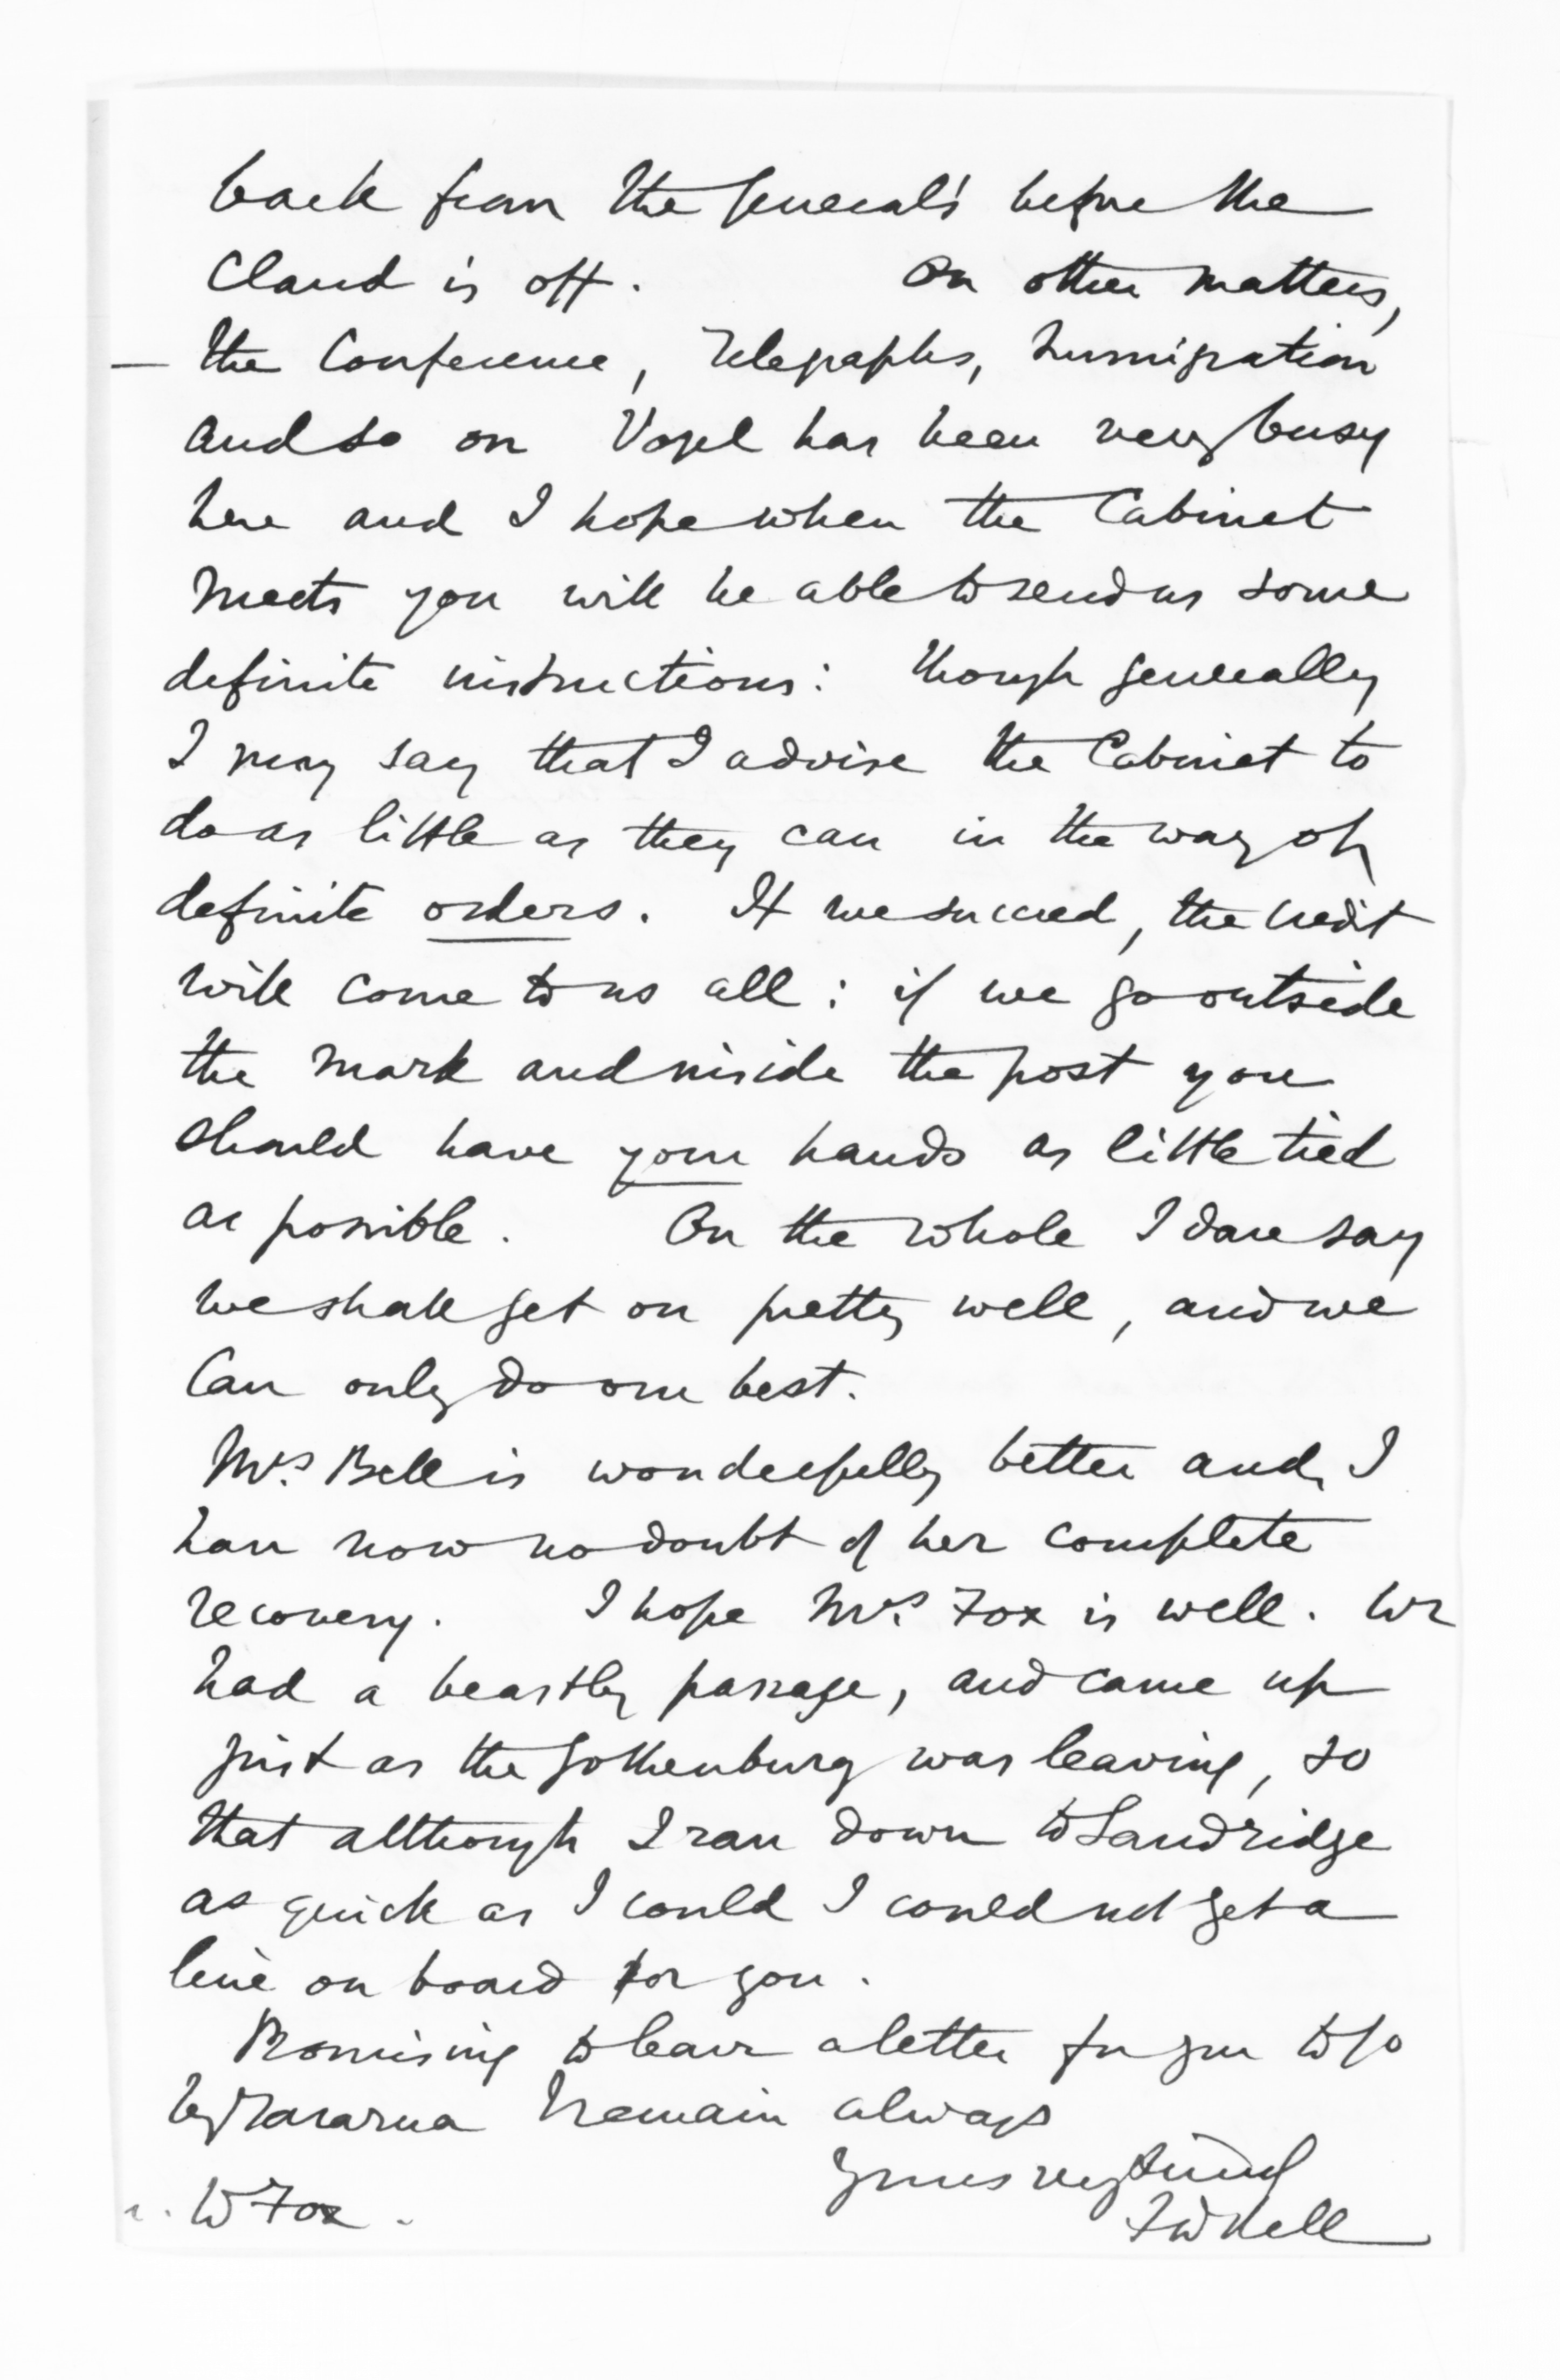 back from the General's before the
Claud is off. On other matters,
— the Conference, Telegraphs, Immigration
and so on Vogel has been very busy
here and I hope when the Cabinet
meets you will be able to send us some
definite instructions: though generally
I may say that I advise the Cabinet to
do as little as they can in the way of
definite orders. If we succeed, the credit
will come to us all: if we go outside
the mark and inside the post you
should have your hands as little tied
as possible. On the whole I dare say
we shall get on pretty well, and we
can only do our best.
Mrs. Bell is wonderfully better and, I
have now no doubt of her complete
recovery. I hope Mrs. Fox is well. We
had a beastly passage, and came up
just as the Gothenburg was leaving, so
that although I ran down to Sandridge
as quick as I could I could not get a
line on board for you.
Promising to leave a letter for you to go
by Tararua I remain always
Yours very sincerely
W Fox. FDBell